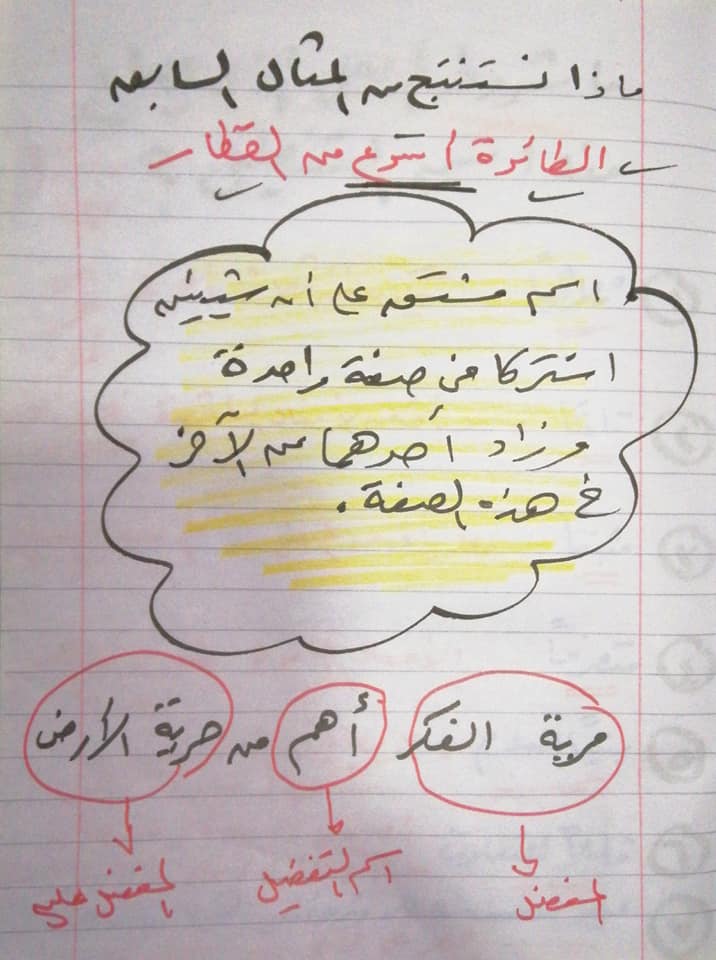 ماذا نستنتج من المثال السابق
الطائرة أسرع من القطار
اسم مشتق على أن شيئين
اشتركا في صفة واحدة
وزاد أحدهما عن الآخر
في هذه الصفة.
حرية الفكر أهم من حرية الأرض
المفضل اسم التفضيل المفضل عليه